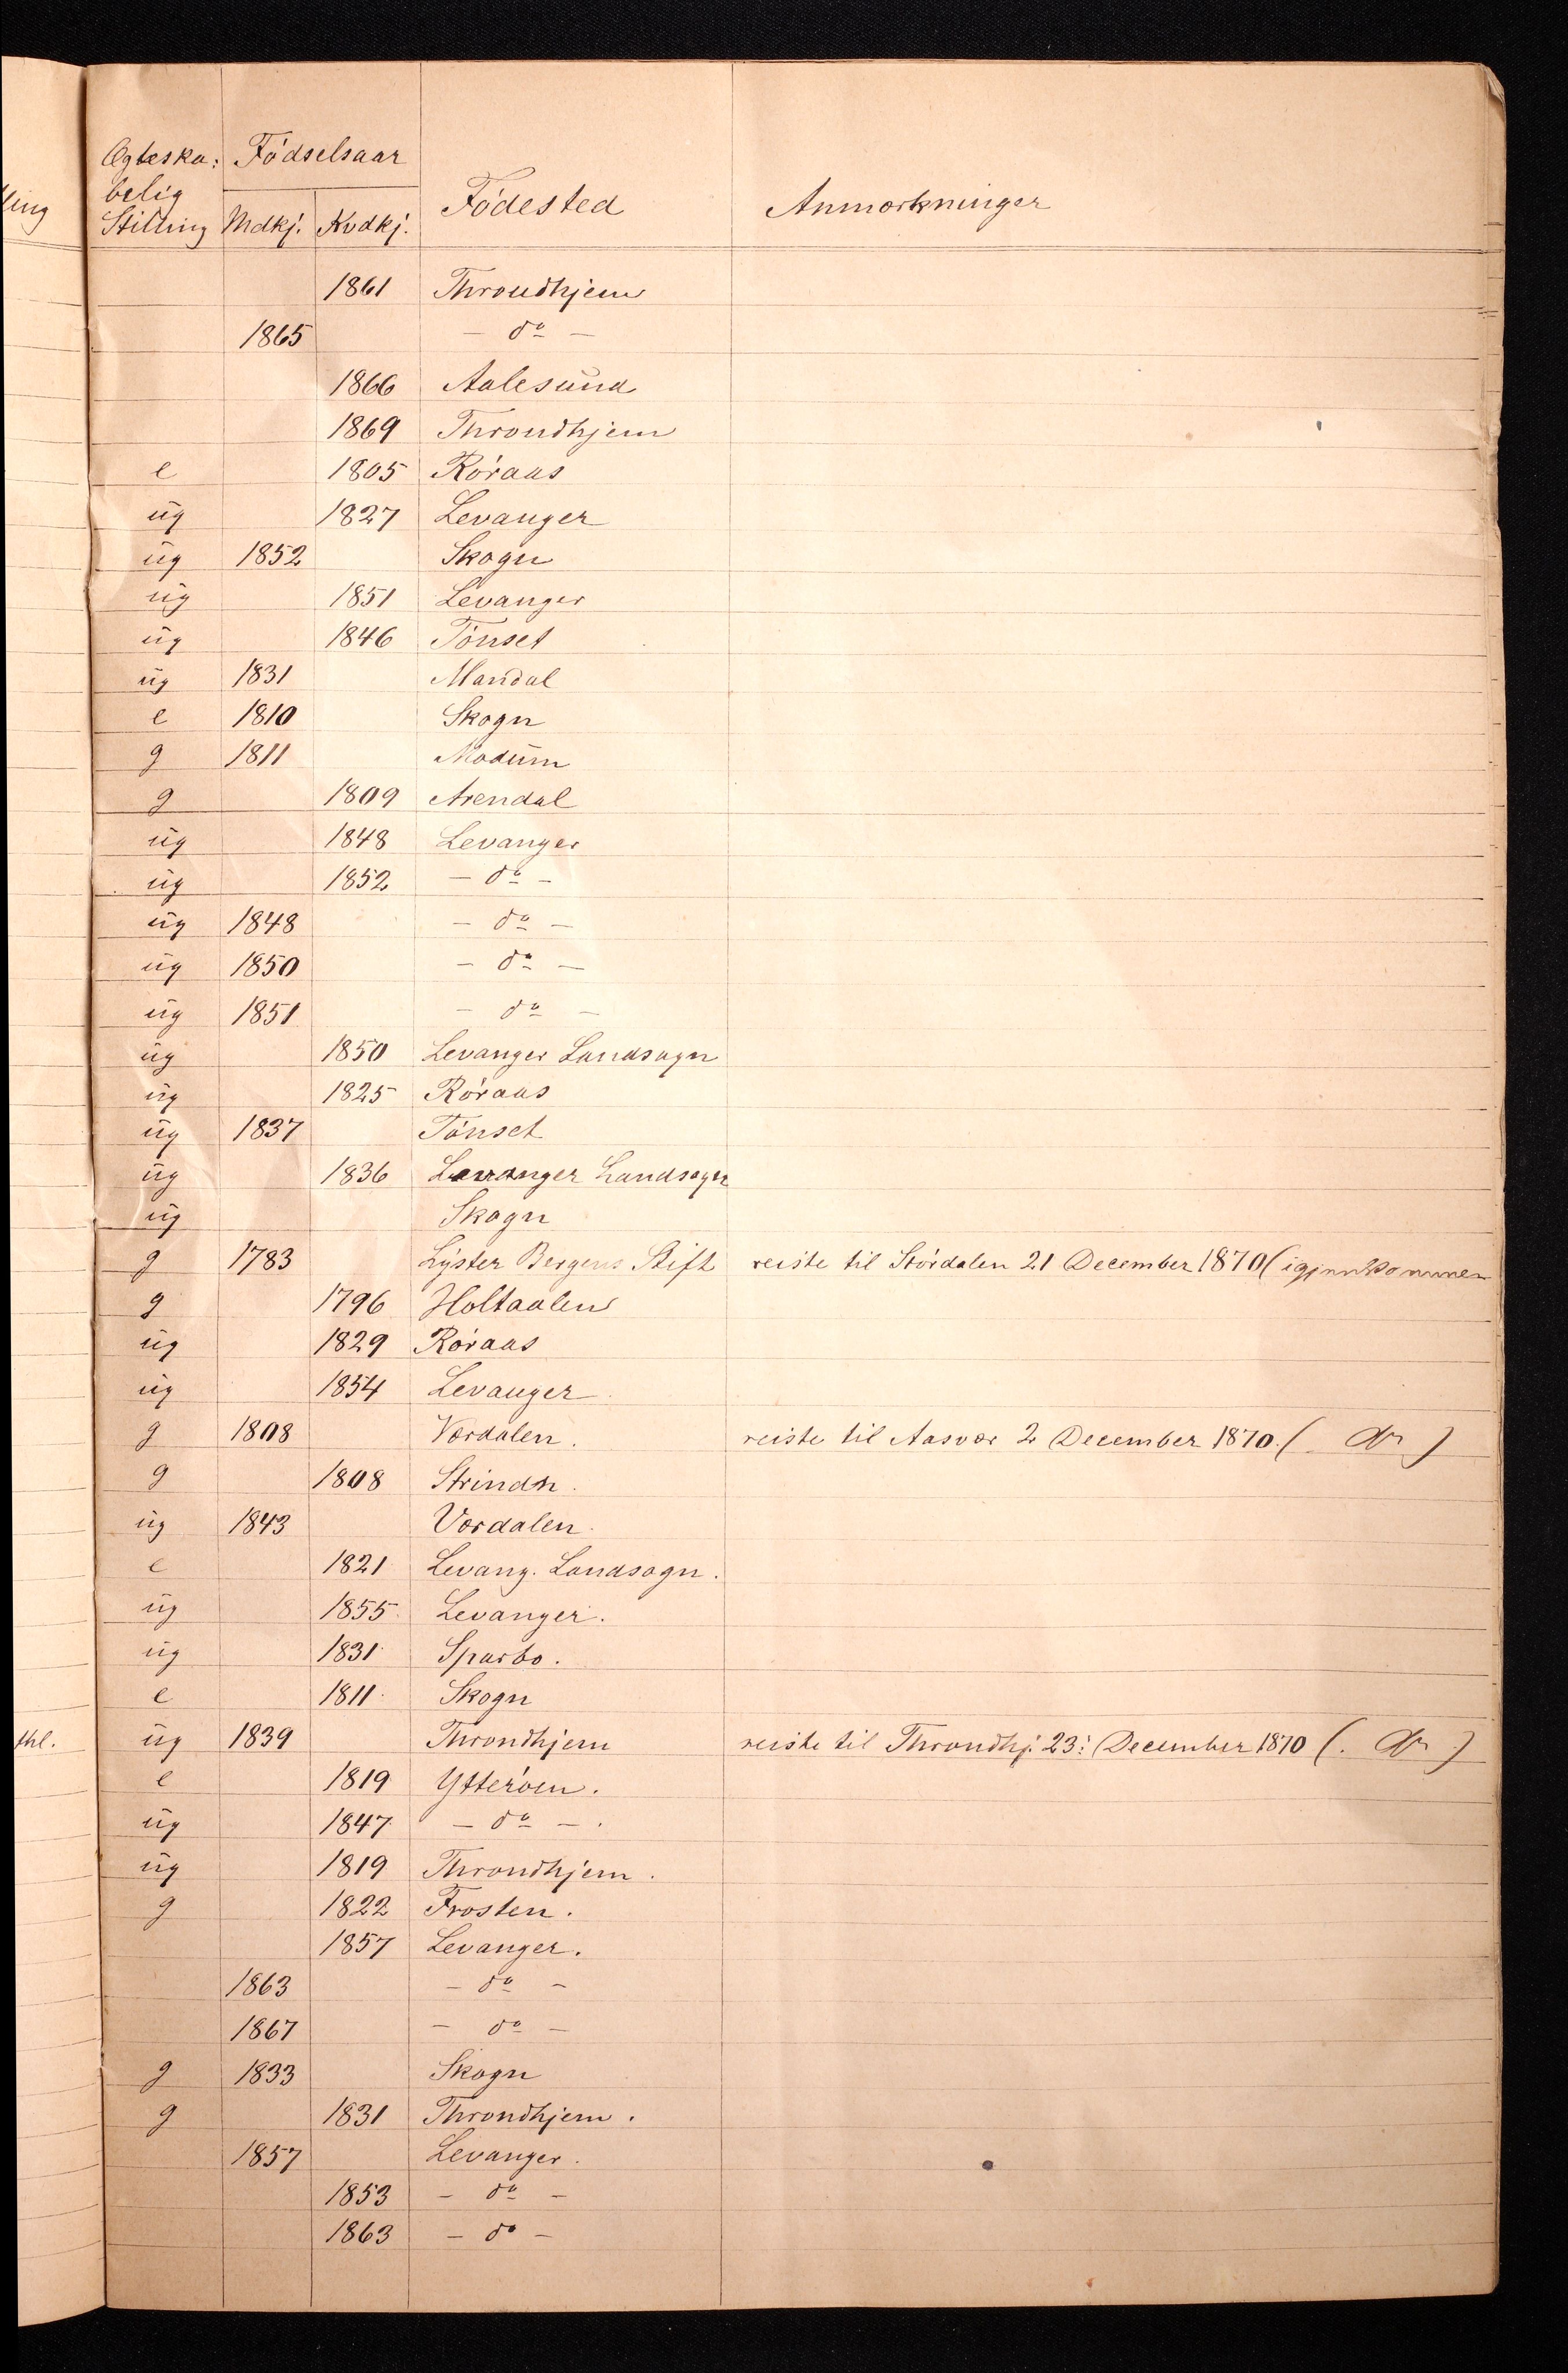 Ægteska: Födselsaar
belig
Stilling Mdkj. Kvdkj. Födested Anmærkninger
1861 Throndhjem
1865 — do —
1866 Aalesund
1869 Throndhjem
e 1805 Röraas
ug 1827 Levanger
ug 1852 Skogn
ug 1851 Levanger
ug 1846 Tönset
ug 1831 Mandal
e 1810 Skogn
g 1811 Modum
g 1809 Arendal
ug 1848 Levanger
ug 1852 — do —
ug 1848 — do —
ug 1850 — do —
ug 1851 — do —
ug 1850 Levanger Landsogn
ug 1825 Röraas
ug 1837 Tönset
ug 1836 Levanger Landsogn
ug Skogn
g 1783 Lyster Bergens Stift reiste til Stördalen 21 December 1870 (igjenkommen
g 1796 Holtaalen
ug 1829 Röraas
ug 1854 Levanger
g 1808 Værdalen. reiste til Aasvær 2 December 1870. ( do )
g 1808 Strinden.
ug 1843 Værdalen.
e 1821 Levang. Landsogn.
ug 1855 Levanger.
ug 1831 Sparbo.
e 1811 Skogn
thl. ug 1839 Throndhjem reiste til Throndhj. 23: December 1870 (. do )
e 1819 Ytteröen.
ug 1847 — do — .
ug 1819 Throndhjem.
g 1822 Frosten.
1857 Levanger.
1863 — do —
1867 — do —
g 1833 Skogn
g 1831 Throndhjem.
1857 Levanger.
1853 — do —
1863 — do —